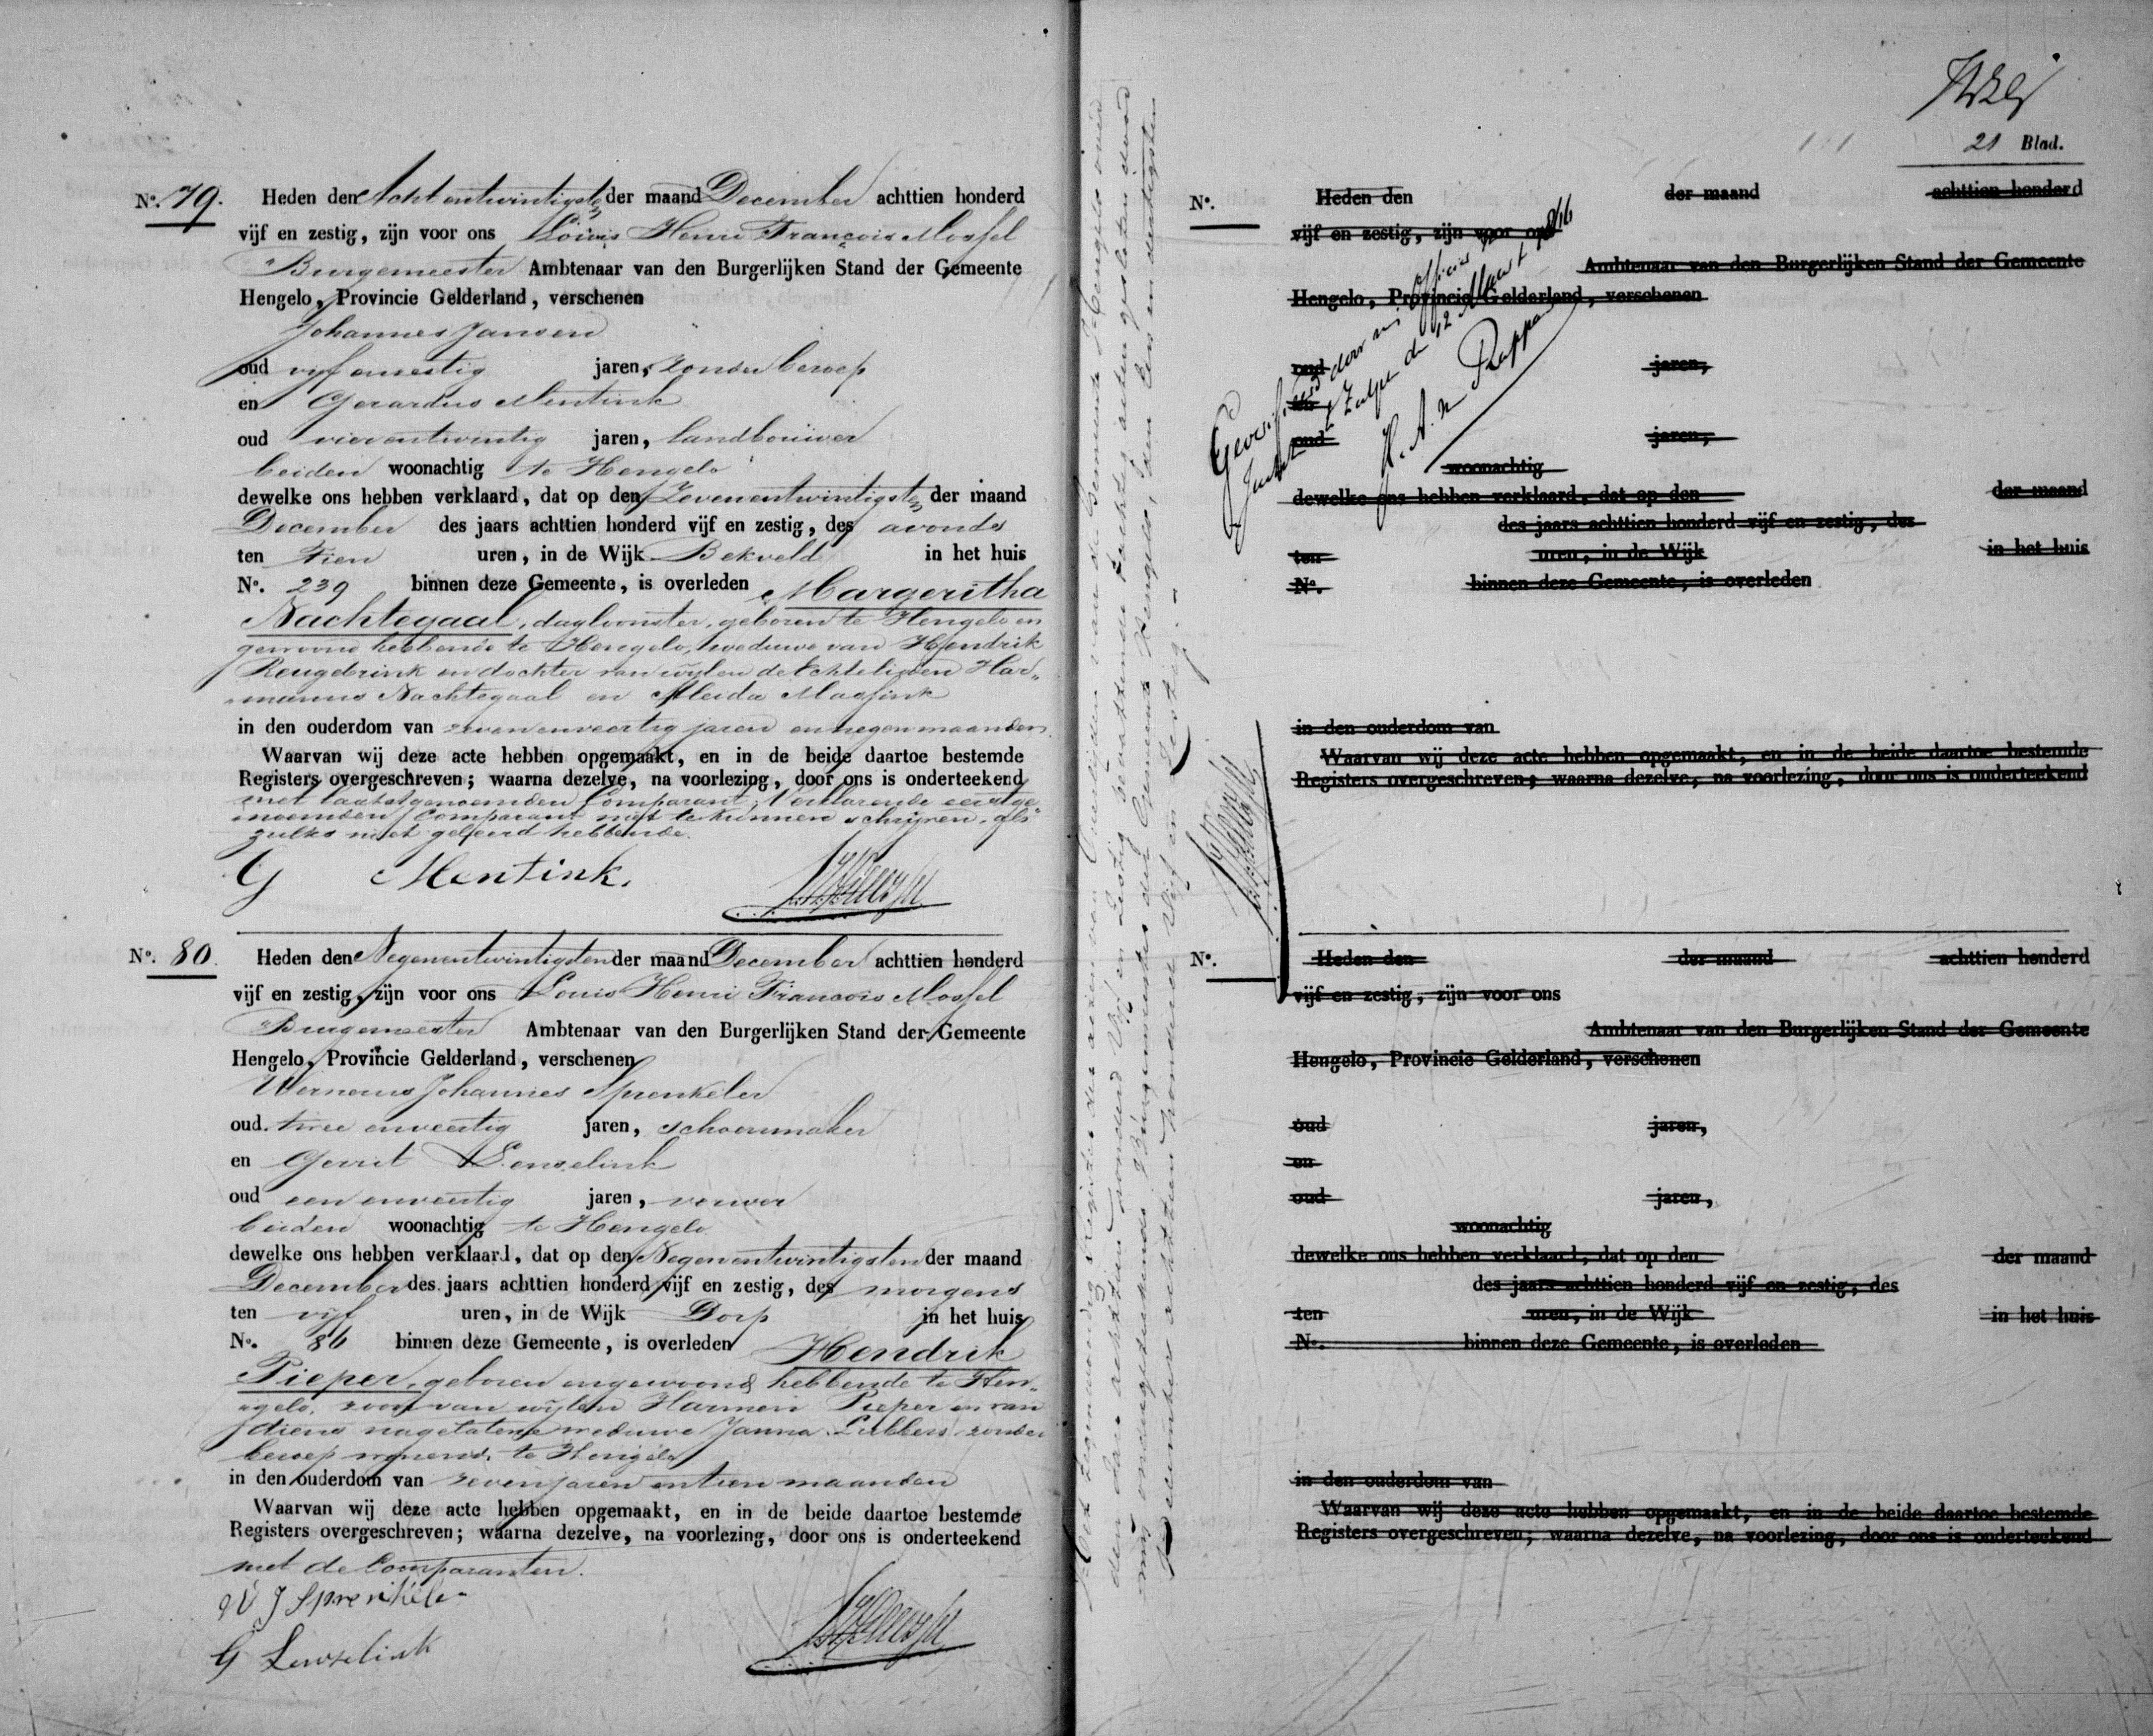 No. 79. Heden den Acht entwintigsten der maand December achttien honderd
vijf en zestig, zijn voor ons Louis Henri François Mossel
Burgemeester Ambtenaar van den Burgerlijken Stand der Gemeente
Hengelo, Provincie Gelderland, verschenen
Johannes Jansen
oud vijf en zestig jaren, zonder beroep
en Gerardus Mentink
oud vier entwintig jaren, landbouwer
beiden woonachtig te Hengelo
dewelke ons hebben verklaard, dat op den Zevenentwintigsten der maand
December des jaars achttien honderd vijf en zestig, des avonds
ten Tien uren, in de Wijk Bekveld in het huis
No. 239 binnen deze Gemeente, is overleden Margeritha
Nachtegaal, dagloonster, geboren te Hengelo en
gewoond hebbende te Hengelo, weduwe van Hendrik
Reugebrink en dochter van wijlen de Echtelieden Har„
„manus Nachtegaal en Aleida Massink
in den ouderdom van zeven enveertig jaren en negen maanden
Waarvan wij deze acte hebben opgemaakt, en in de beide daartoe bestemde
Registers overgeschreven; waarna dezelve, na voorlezing, door ons is onderteekend
met laatstgenoemden Comparant, Verklarende eerstge„
noemden Comparant niet te kunnen schrijven, als
zulks niet geleerd hebbende.
G Mentink.
No. 80. Heden den Negenentwintigsten der maand December achttien honderd
vijf en zestig, zijn voor ons Louis Henri François Mossel
Burgemeester Ambtenaar van den Burgerlijken Stand der Gemeente
Hengelo, Provincie Gelderland, verschenen
Wernerus Johannes Sprenkeler
oud twee enveertig jaren, schoenmaker
en Gerrit Lenselink
oud een enveertig jaren, verwer
beiden woonachtig te Hengelo
dewelke ons hebben verklaard, dat op den Negenentwintigsten der maand
December des jaars achttien honderd vijf en zestig, des morgens
ten vijf uren, in de Wijk Dorp in het huis
No. 86 binnen deze Gemeente, is overleden Hendrik
Pieper, geboren en gewoond hebbende te Hen„
„gelo, zoon van wijlen Harmen Pieper en van
diens nagelatene weduwe Janna Lubbers zonder
beroep wonend te Hengelo
in den ouderdom van zeven jaren en tien maanden
Waarvan wij deze acte hebben opgemaakt, en in de beide daartoe bestemde
Registers overgeschreven; waarna dezelve, na voorlezing, door ons is onderteekend
met de Comparanten.
W J Sprenkeler
G Lenselink
Het tegenwoordig register der acten van Overlijden van de Gemeente Hengelo over
den jare achttien honderd Vijf en Zestig bevattende tachtig acten gesloten door
mij ondergeteekende Burgemeester der Gemeente Hengelo, den Een en dertigsten
December achttien honderd Vijf en Zestig.
21 Blad.
No. Heden den der maand achttien honderd
vijf en zestig, zijn voor ons
Ambtenaar van den Burgerlijken Stand der Gemeente
Hengelo, Provincie Gelderland, verschenen
oud jaren,
en
oud jaren,
woonachtig
dewelke ons hebben verklaard, dat op den der maand
des jaars achttien honderd vijf en zestig, des
ten uren, in de Wijk in het huis
No. binnen deze Gemeente, is overleden
in den ouderdom van
Waarvan wij deze acte hebben opgemaakt, en in de beide daartoe bestemde
Registers overgeschreven; waarna dezelve, na voorlezing, door ons is onderteekend
Geverifieerd door mij Officier v
Zutphen den 12 Maart 1866
No. Heden den der maand achttien honderd
vijf en zestig, zijn voor ons
Ambtenaar van den Burgerlijken Stand der Gemeente
Hengelo, Provincie Gelderland, verschenen
oud jaren,
en
oud jaren,
woonachtig
dewelke ons hebben verklaard, dat op den der maand
des jaars achttien honderd vijf en zestig, des
ten uren, in de Wijk in het huis
No. binnen deze Gemeente, is overleden
in den ouderdom van
Waarvan wij deze acte hebben opgemaakt, en in de beide daartoe bestemde
Registers overgeschreven; waarna dezelve, na voorlezing, door ons is onderteekend